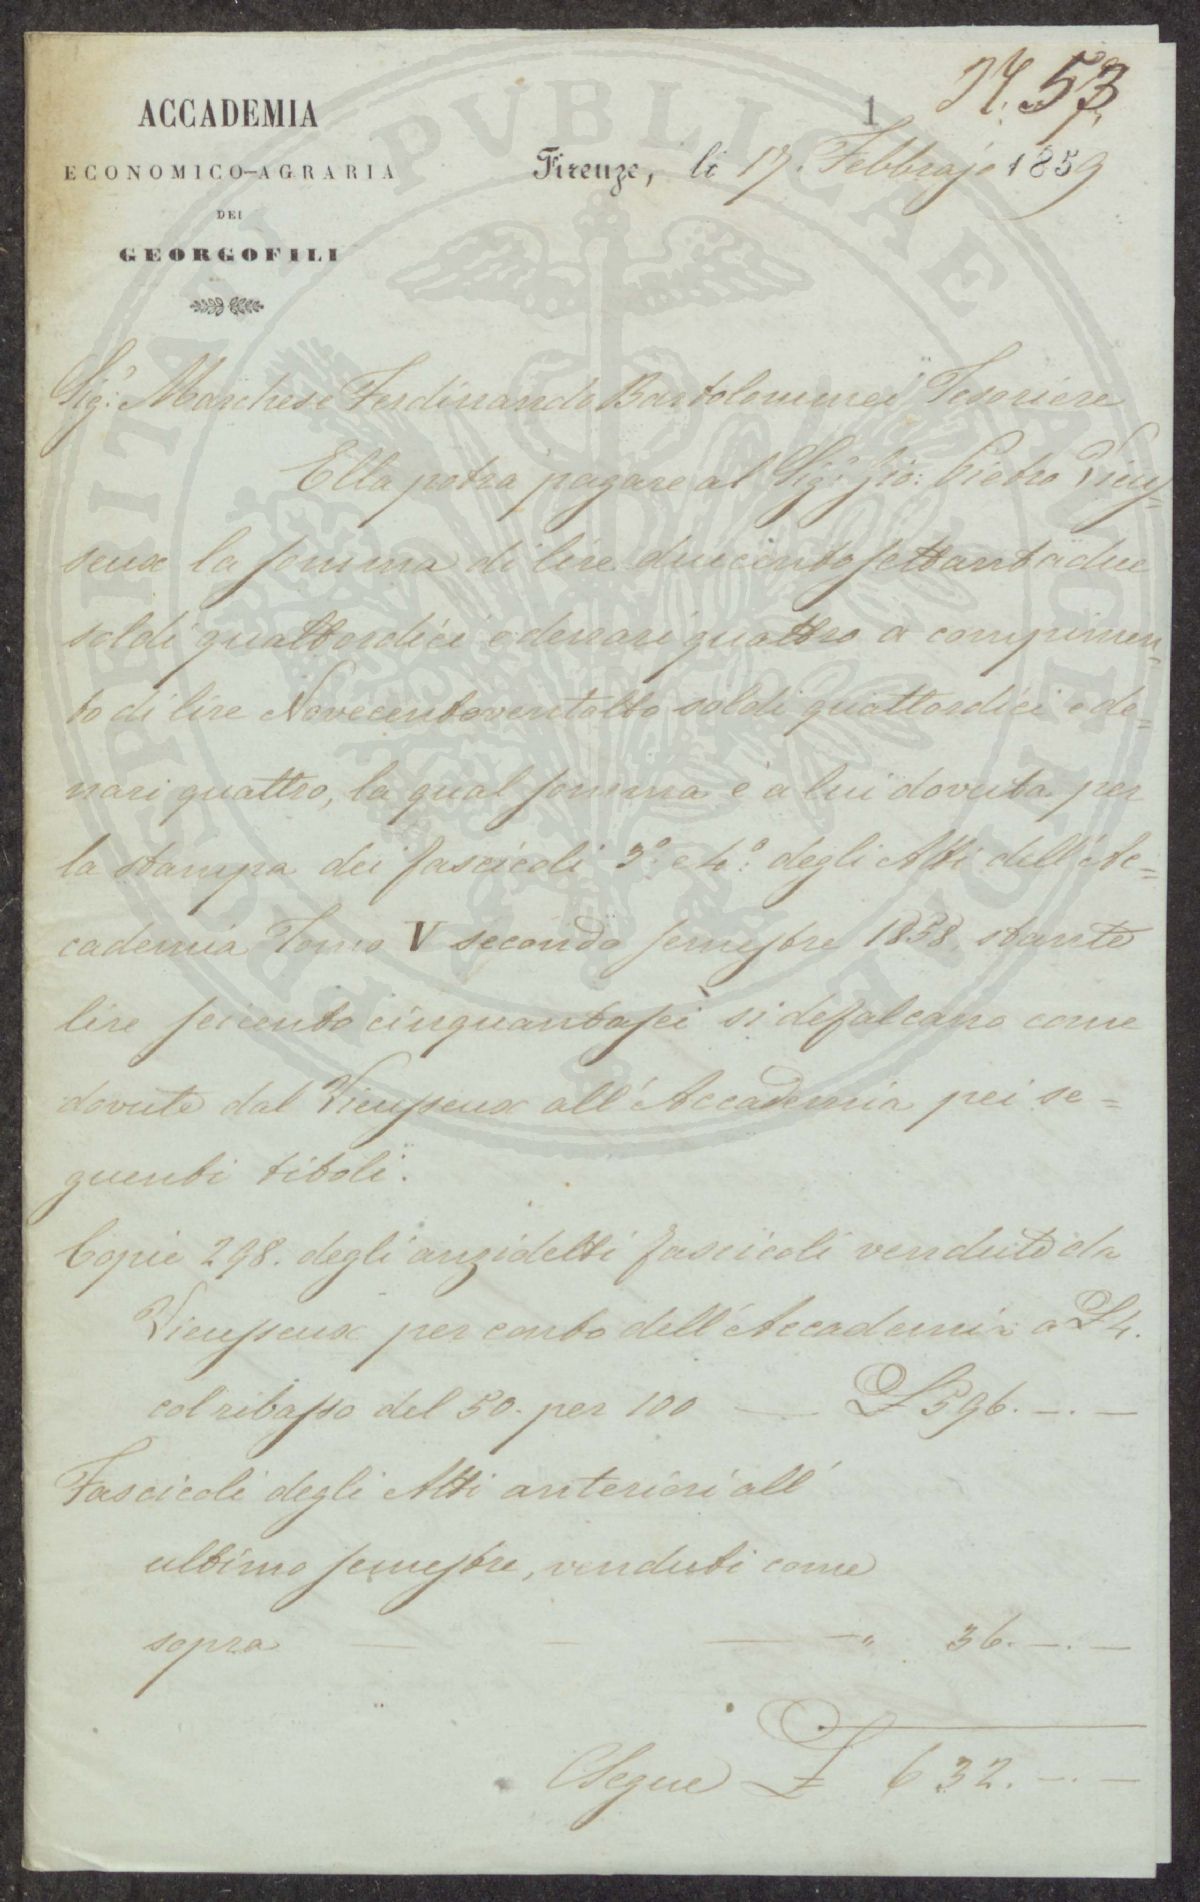 N. 53.
1
ACCADEMIA
ECONOMICO-AGRARIA
DEI
GEORGOFILI
Firenze, li 17. Febbrajo 1859
Sig.r Marchese Ferdinando Bartolommei Tesoriere
Ella potrà pagare al Sig.r Gio: Pietro Vieus=
seux la somma di lire duecentosettantadue
soldi quattordici e denari quattro a compimen=
to di lire Novecentoventotto soldi quattordici e de=
nari quattro, la qual somma è a lui dovuta per
la stampa dei fascicoli 3.° e 4.° degli Atti dell'Ac=
cademia Tomo V secondo semestre 1858. stante
lire seicentocinquantasei si defalcano come
dovute dal Vieusseux all'Accademia pei se=
guenti titoli.
Copie 298. degli anzidetti fascicoli vendute da
Vieusseux per conto dell'Accademia a £ 4.
col ribasso del 50. per 100 — £ 596. —. —
Fascicoli degli Atti anteriori all'
ultimo semestre, venduti come
sopra — — — — " 36. —. —
Segue £ 632. —. —
PROSPERITATI PVBLICAE AVGENDAE